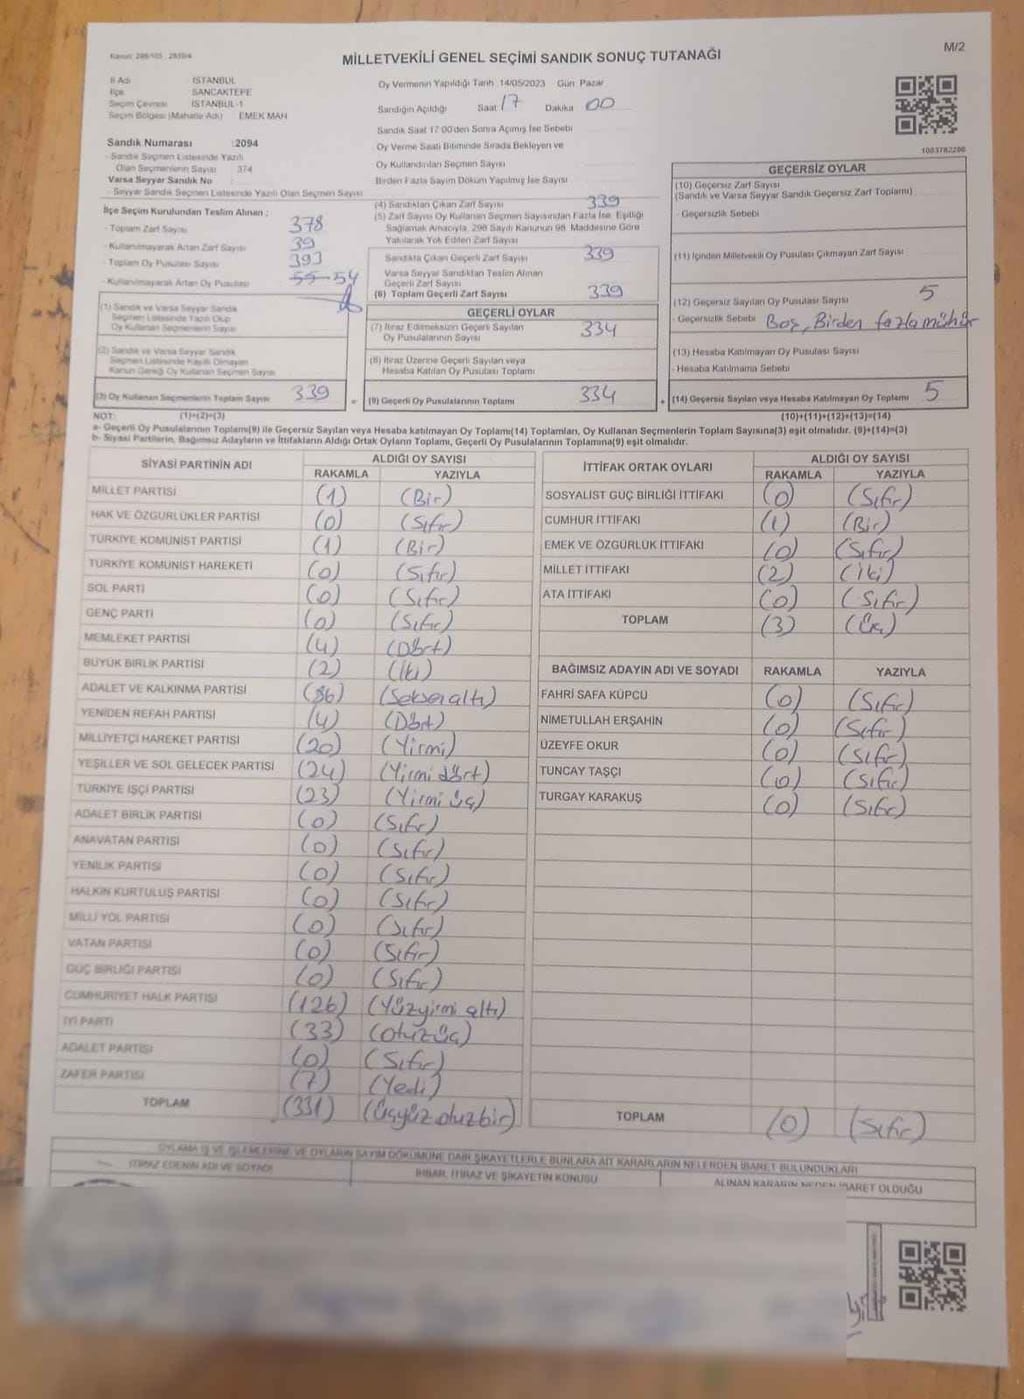 Kanun: 298/105 2839/4
MİLLETVEKİLİ GENEL SEÇİMİ SANDIK SONUÇ TUTANAĞI
M/2
İl Adı İSTANBUL
İlçe SANCAKTEPE
Seçim Çevresi İSTANBUL-1
Seçim Bölgesi (Mahalle Adı) EMEK MAH
Oy Vermenin Yapıldığı Tarih 14/05/2023 Gün Pazar
Sandığın Açıldığı Saat 17 Dakika 00
Sandık Saat 17:00'den Sonra Açılmış İse Sebebi
Oy Verme Saati Bitiminde Sırada Bekleyen ve
Oy Kullandırılan Seçmen Sayısı
Birden Fazla Sayım Döküm Yapılmış İse Sayısı
Sandık Numarası :2094
- Sandık Seçmen Listesinde Yazılı
Olan Seçmenlerin Sayısı 374
Varsa Seyyar Sandık No :
- Seyyar Sandık Seçmen Listesinde Yazılı Olan Seçmen Sayısı
İlçe Seçim Kurulundan Teslim Alınan :
- Toplam Zarf Sayısı 378
- Kullanılmayarak Artan Zarf Sayısı 39
- Toplam Oy Pusulası Sayısı 393
- Kullanılmayarak Artan Oy Pusulası 55 54
(1) Sandık ve Varsa Seyyar Sandık
Seçmen Listesinde Yazılı Olup
Oy Kullanan Seçmenlerin Sayısı
(2) Sandık ve Varsa Seyyar Sandık
Seçmen Listesinde Kayıtlı Olmayan
Kanun Gereği Oy Kullanan Seçmen Sayısı
(3) Oy Kullanan Seçmenlerin Toplam Sayısı 339
(4) Sandıktan Çıkan Zarf Sayısı 339
(5) Zarf Sayısı Oy Kullanan Seçmen Sayısından Fazla İse, Eşitliği
Sağlamak Amacıyla, 298 Sayılı Kanunun 98. Maddesine Göre
Yakılarak Yok Edilen Zarf Sayısı
Sandıkta Çıkan Geçerli Zarf Sayısı 339
Varsa Seyyar Sandıktan Teslim Alınan
Geçerli Zarf Sayısı
(6) Toplam Geçerli Zarf Sayısı 339
GEÇERLİ OYLAR
(7) İtiraz Edilmeksizin Geçerli Sayılan
Oy Pusulalarının Sayısı 334
(8) İtiraz Üzerine Geçerli Sayılan veya
Hesaba Katılan Oy Pusulası Toplamı
= (9) Geçerli Oy Pusulalarının Toplamı 334
1003782200
GEÇERSİZ OYLAR
(10) Geçersiz Zarf Sayısı
(Sandık ve Varsa Seyyar Sandık Geçersiz Zarf Toplamı)
- Geçersizlik Sebebi
(11) İçinden Milletvekili Oy Pusulası Çıkmayan Zarf Sayısı
(12) Geçersiz Sayılan Oy Pusulası Sayısı 5
- Geçersizlik Sebebi Boş, Birden fazla mühür
(13) Hesaba Katılmayan Oy Pusulası Sayısı
- Hesaba Katılmama Sebebi
+ (14) Geçersiz Sayılan veya Hesaba Katılmayan Oy Toplamı 5
NOT: (1)+(2)=(3) (10)+(11)+(12)+(13)=(14)
a- Geçerli Oy Pusulalarının Toplamı(9) ile Geçersiz Sayılan veya Hesaba Katılmayan Oy Toplamı(14) Toplamları, Oy Kullanan Seçmenlerin Toplam Sayısına(3) eşit olmalıdır. (9)+(14)=(3)
b- Siyasi Partilerin, Bağımsız Adayların ve İttifakların Aldığı Ortak Oyların Toplamı, Geçerli Oy Pusulalarının Toplamına(9) eşit olmalıdır.
SİYASİ PARTİNİN ADI ALDIĞI OY SAYISI
RAKAMLA YAZIYLA
MİLLET PARTİSİ (1) (Bir)
HAK VE ÖZGÜRLÜKLER PARTİSİ (0) (Sıfır)
TÜRKİYE KOMÜNİST PARTİSİ (1) (Bir)
TÜRKİYE KOMÜNİST HAREKETİ (0) (Sıfır)
SOL PARTİ (0) (Sıfır)
GENÇ PARTİ (0) (Sıfır)
MEMLEKET PARTİSİ (4) (Dört)
BÜYÜK BİRLİK PARTİSİ (2) (İki)
ADALET VE KALKINMA PARTİSİ (86) (Seksenaltı)
YENİDEN REFAH PARTİSİ (4) (Dört)
MİLLİYETÇİ HAREKET PARTİSİ (20) (Yirmi)
YEŞİLLER VE SOL GELECEK PARTİSİ (24) (Yirmi dört)
TÜRKİYE İŞÇİ PARTİSİ (23) (Yirmi üç)
ADALET BİRLİK PARTİSİ (0) (Sıfır)
ANAVATAN PARTİSİ (0) (Sıfır)
YENİLİK PARTİSİ (0) (Sıfır)
HALKIN KURTULUŞ PARTİSİ (0) (Sıfır)
MİLLİ YOL PARTİSİ (0) (Sıfır)
VATAN PARTİSİ (0) (Sıfır)
GÜÇ BİRLİĞİ PARTİSİ (0) (Sıfır)
CUMHURİYET HALK PARTİSİ (126) (Yüzyirmi altı)
İYİ PARTİ (33) (Otuzüç)
ADALET PARTİSİ (0) (Sıfır)
ZAFER PARTİSİ (7) (Yedi)
TOPLAM (331) (Üçyüz otuzbir)
İTTİFAK ORTAK OYLARI ALDIĞI OY SAYISI
RAKAMLA YAZIYLA
SOSYALİST GÜÇ BİRLİĞİ İTTİFAKI (0) (Sıfır)
CUMHUR İTTİFAKI (1) (Bir)
EMEK VE ÖZGÜRLÜK İTTİFAKI (0) (Sıfır)
MİLLET İTTİFAKI (2) (İki)
ATA İTTİFAKI (0) (Sıfır)
TOPLAM (3) (Üç)
BAĞIMSIZ ADAYIN ADI VE SOYADI RAKAMLA YAZIYLA
FAHRİ SAFA KÜPCÜ (0) (Sıfır)
NİMETULLAH ERŞAHİN (0) (Sıfır)
ÜZEYFE OKUR (0) (Sıfır)
TUNCAY TAŞÇI (0) (Sıfır)
TURGAY KARAKUŞ (0) (Sıfır)
TOPLAM (0) (Sıfır)
OYLAMA İŞ VE İŞLEMLERİNE VE OYLARIN SAYIM DÖKÜMÜNE DAİR ŞİKAYETLERLE BUNLARA AİT KARARLARIN NELERDEN İBARET BULUNDUKLARI
İTİRAZ EDENİN ADI VE SOYADI İHBAR, İTİRAZ VE ŞİKAYETİN KONUSU ALINAN KARARIN NEDEN İBARET OLDUĞU